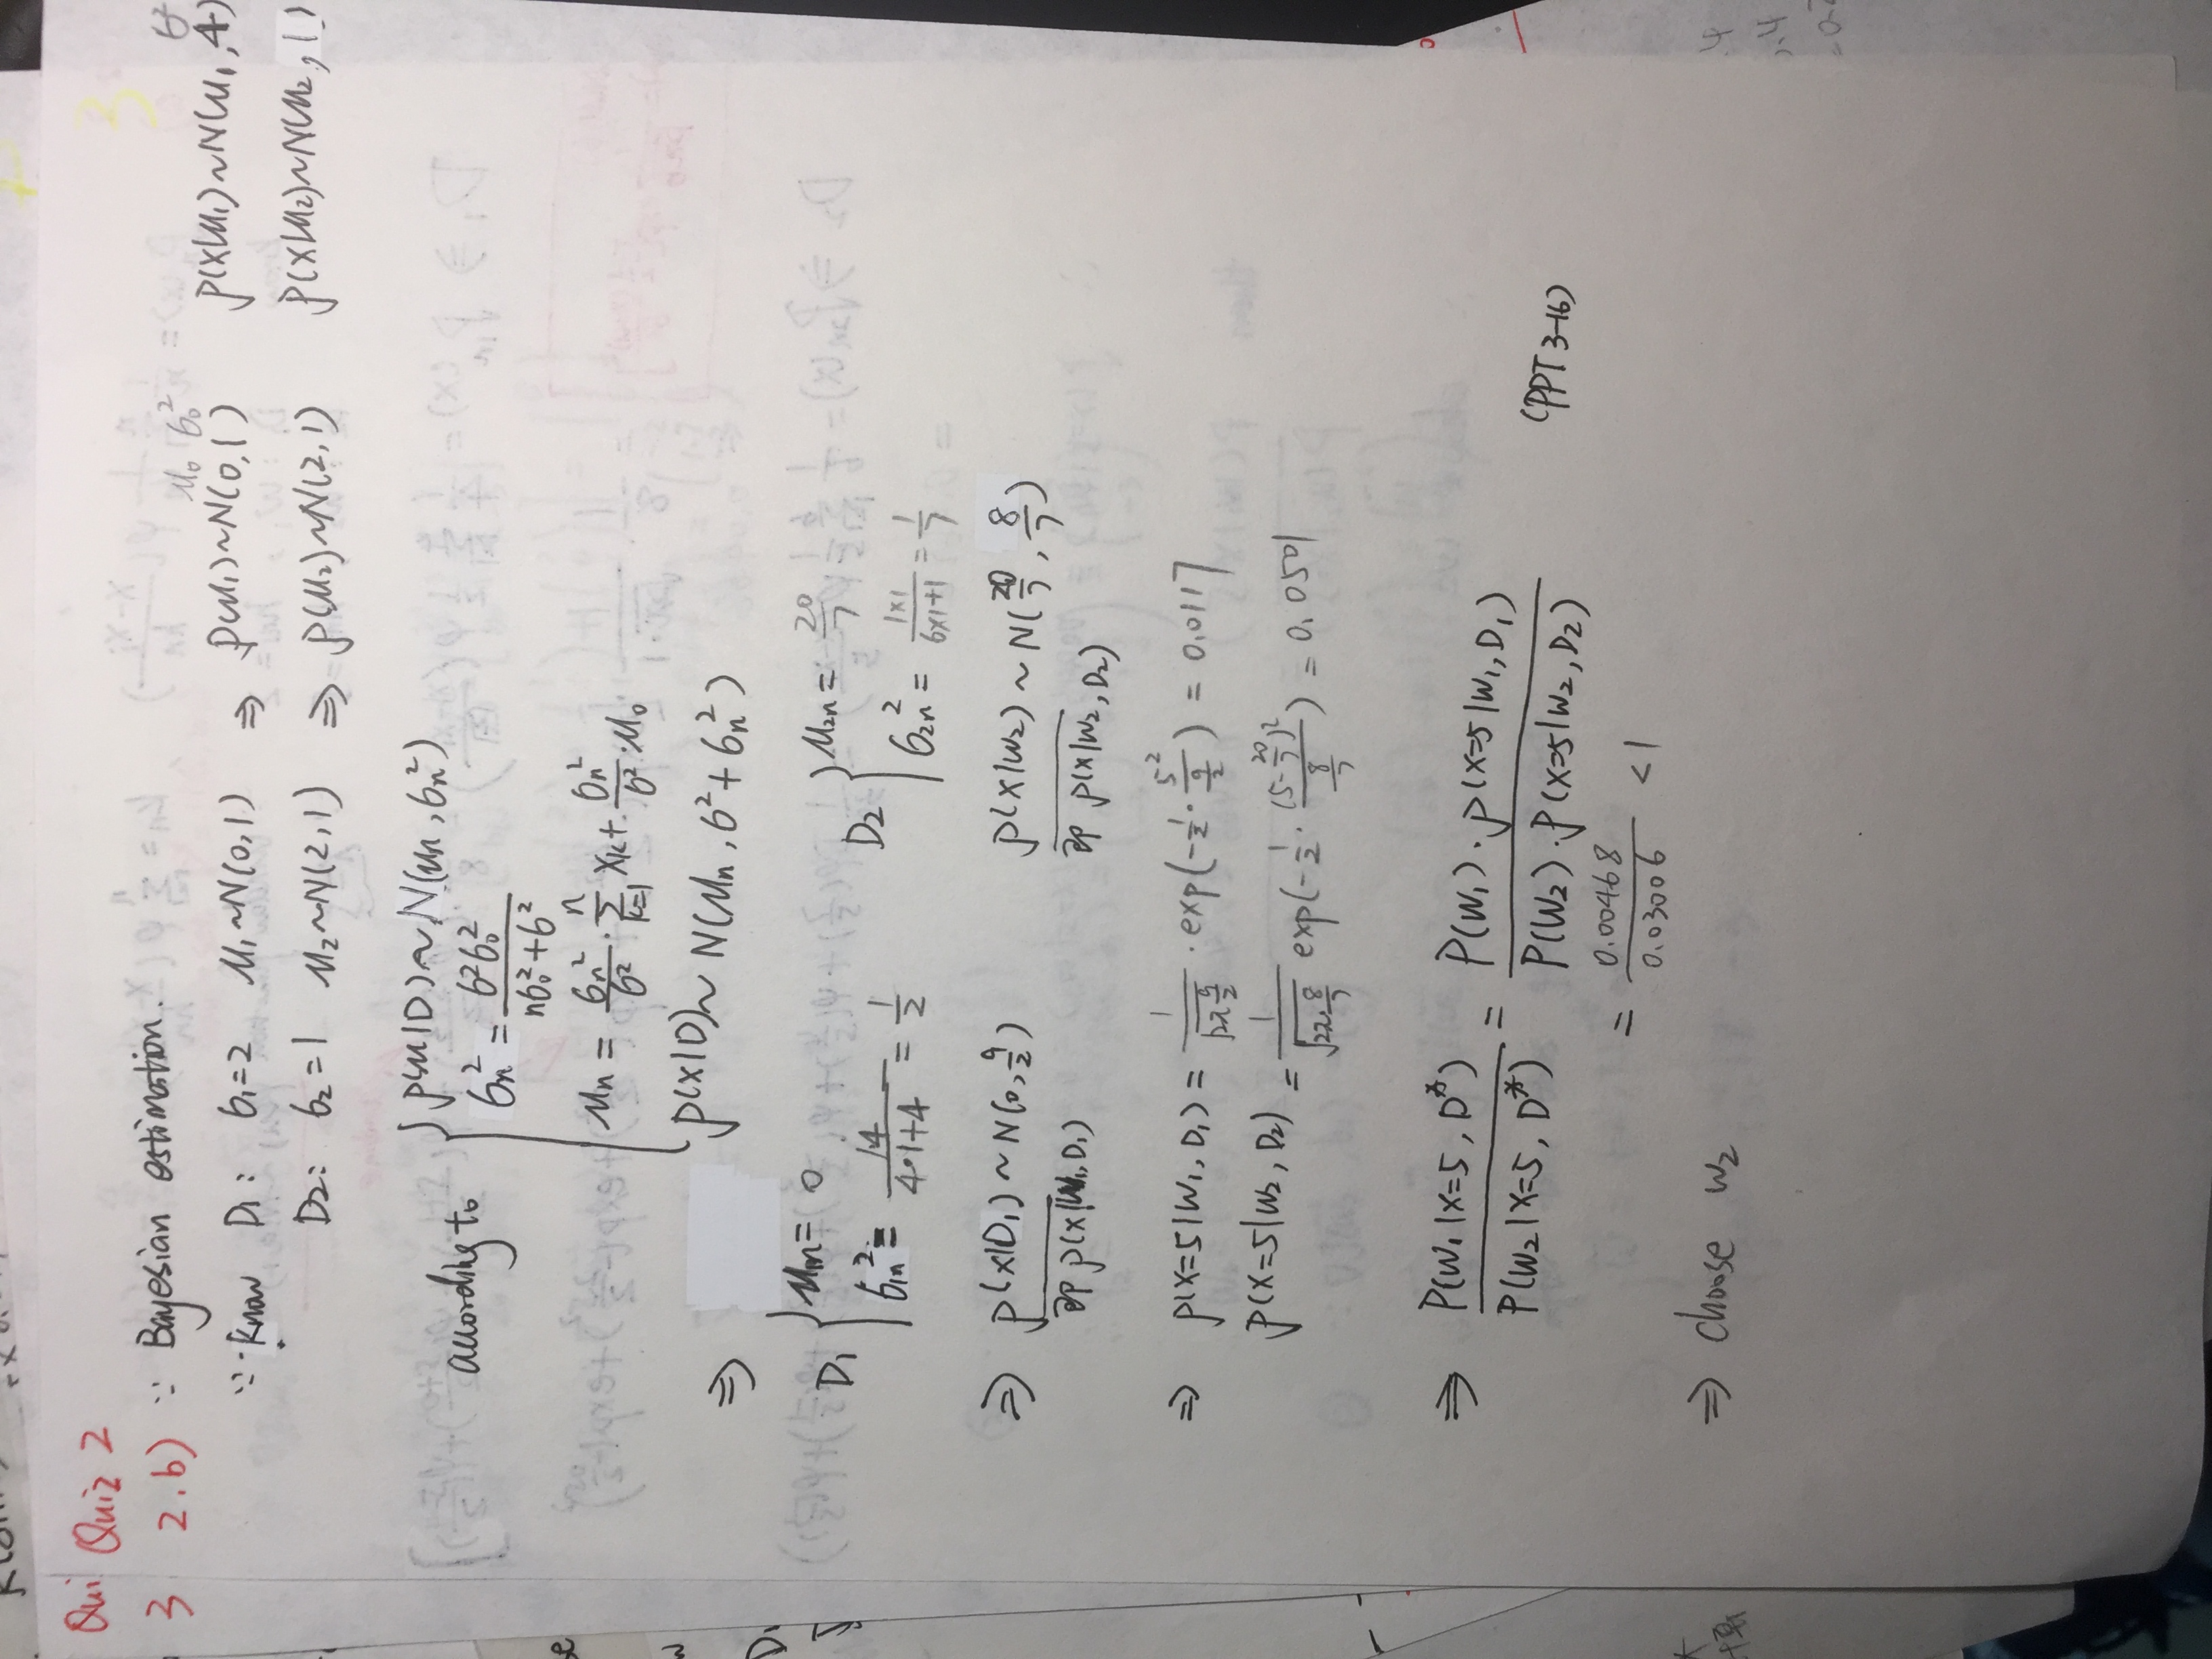 Qui Quiz 2
3 2.b) ∵ Bayesian estimation.
μ₀ σ₀² σ²
∵ know D₁: σ₁=2 μ₁~N(0,1) ⇒ p(μ₁)~N(0,1) p(x|μ₁)~N(μ₁,4)
D₂: σ₂=1 μ₂~N(2,1) ⇒ p(μ₂)~N(2,1) p(x|μ₂)~N(μ₂,1)
according to { p(μ|D)~N(μn,σn²)
σn² = σ²σ₀² / (nσ₀²+σ²)
μn = σn²/σ² · Σ_{k=1}^{n} xk + σn²/σ² · μ₀
p(x|D)~N(μn,σ²+σn²)
⇒
D₁ { μ₁n = 0 D₂ { μ₂n = 20/7
σ₁n² = 1·4/(4·1+4) = 1/2 σ₂n² = 1×1/(6×1+1) = 1/7
⇒ p(x|D₁)~N(0,9/2) p(x|w₂)~N(20/7,8/7)
即 p(x|w₁,D₁) 即 p(x|w₂,D₂)
⇒ p(x=5|w₁,D₁) = 1/√(2π 9/2) · exp(-1/2 · 5²/(9/2)) = 0.0117
p(x=5|w₂,D₂) = 1/√(2π·8/7) exp(-1/2 · (5-20/7)²/(8/7)) = 0.0501
⇒ P(w₁|x=5,D*) / P(w₂|x=5,D*) = P(w₁)·p(x=5|w₁,D₁) / P(w₂)·p(x=5|w₂,D₂) (PPT 3-16)
= 0.00468/0.03006 <1
⇒ choose w₂